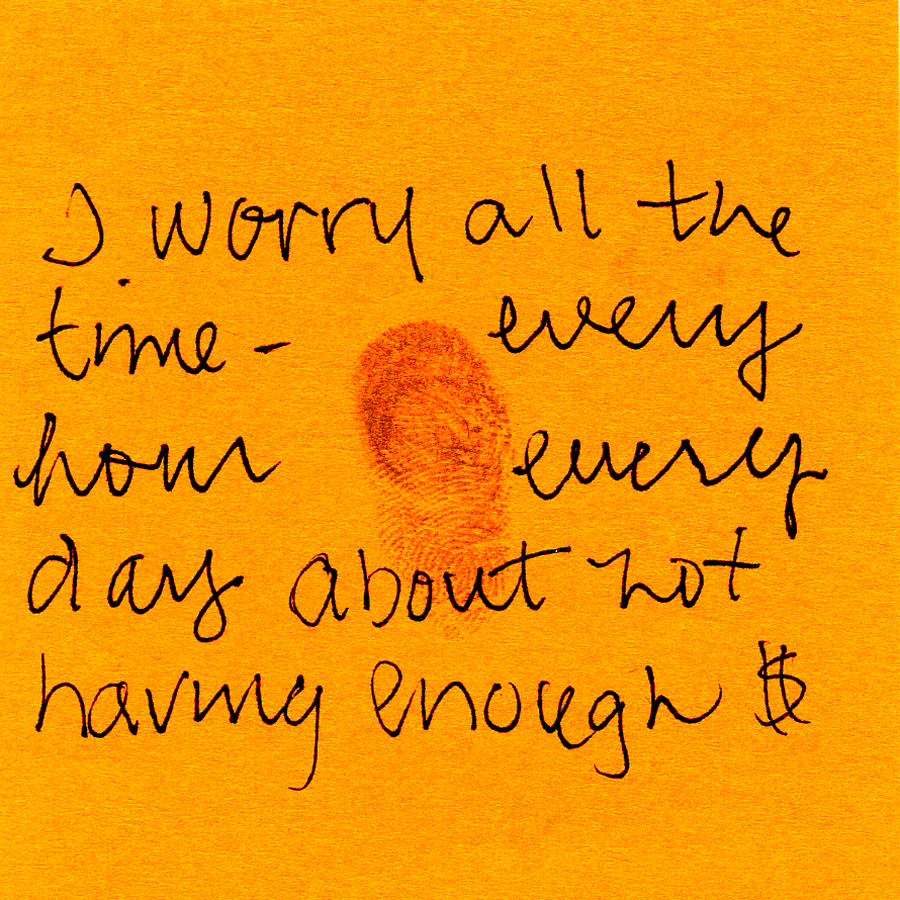 I worry all the
time - every
hour every
day about not
having enough $